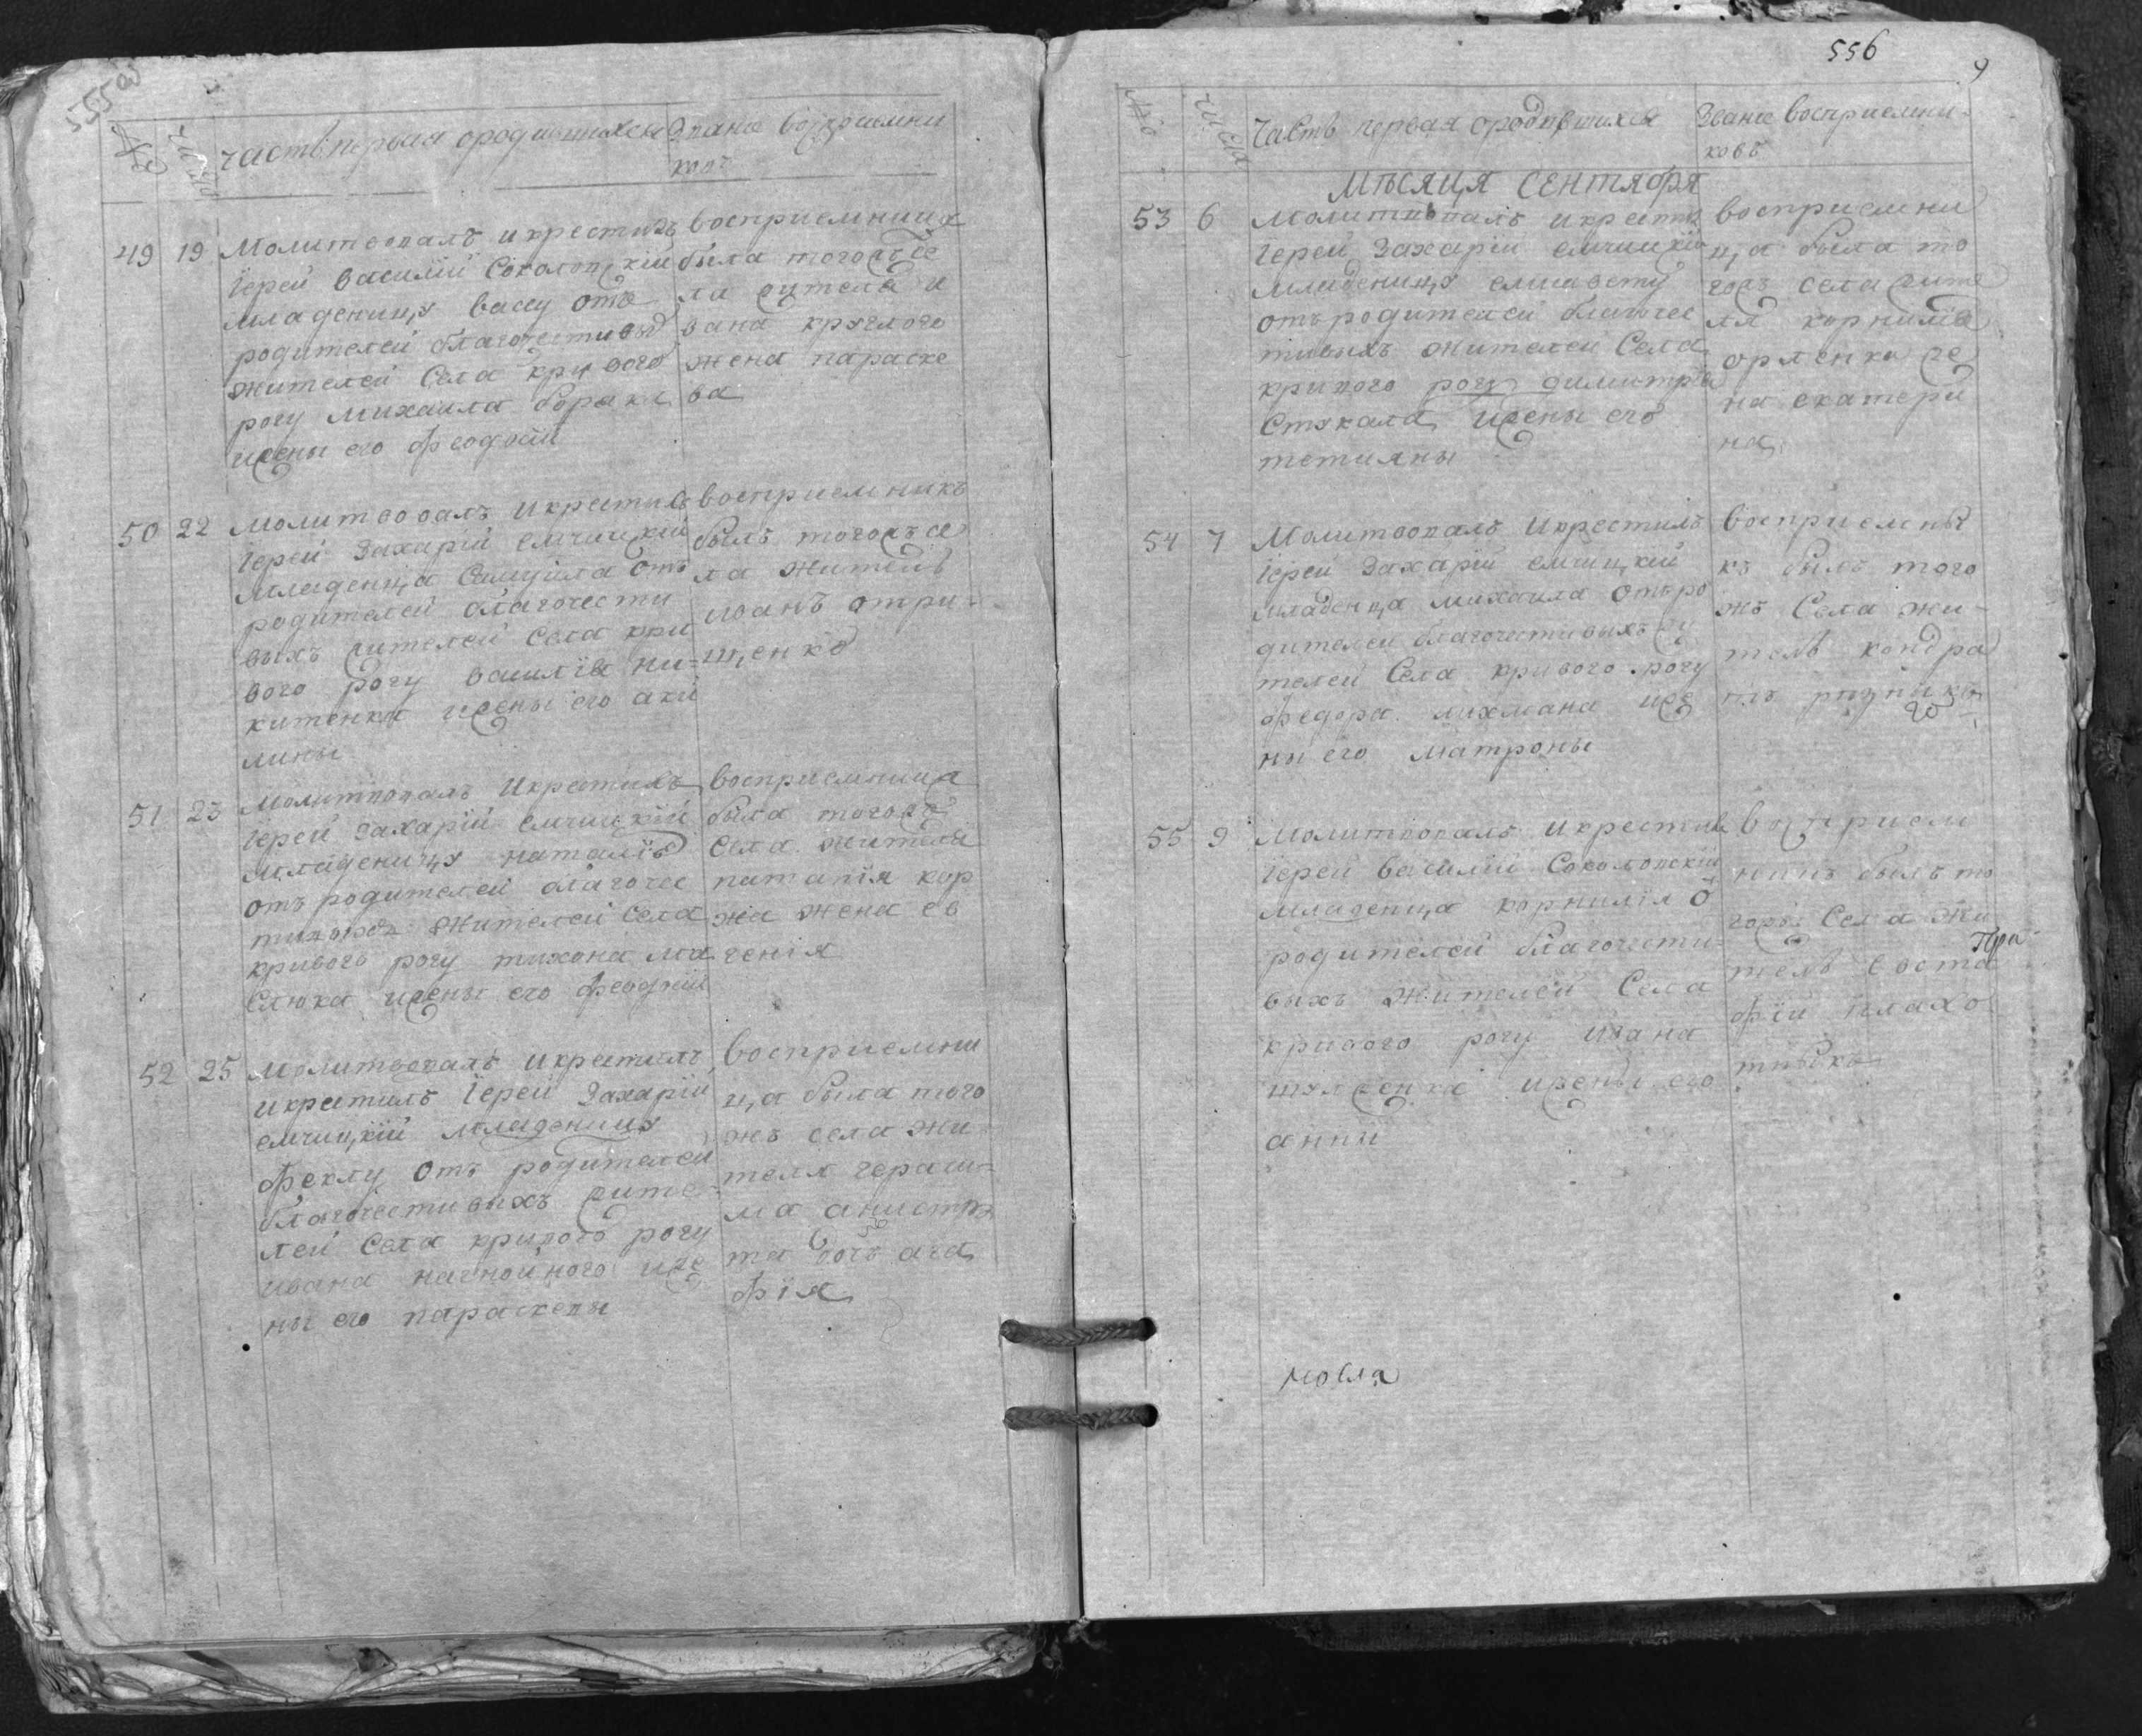 555об
№ число часть первая ородившихся Звание восприемни
ковъ
49 19 Молитвовалъ и крестилъ
Іерей василій Соколовскій
младеницу вассу отъ
родителей благочестивы
жителей Села кривого
рогу михаила борыка
ижены его феодосіи
восприемница
была тогожъ се
ла жителя и
вана круглого
жена параске
ва
50 22 Молитвовалъ и крестилъ
Іерей Захарій емчицкій
младенца Самуила отъ
родителей благочести
выхъ жителей Села кри
вого рогу василія ни-
китенка ижены его аки
лины
восприемникъ
былъ тогожъ се
ла житель
иванъ отри-
щенко
51 23 Молитвовалъ и крестилъ
Іерей Захарій емчицкій
младеницу наталію
отъ родителей благочес
тивыхъ жителей Села
кривого рогу тихона ма
Слюка ижены его феодосіи
восприемница
была тогожъ
Села жителя
жа жена ев
генія
52 25 Молитвовалъ и крестилъ
и крестилъ Іерей Захарій
емчицкій младеницу
феклу отъ родителей
благочестивыхъ жите
лей Села кривого рогу
ивана нагнойного иже
ны его параскевы
восприемни
ца была того
жъ села жи
теля гераси-
ма
дочь ага
фія
556
9
№ числа Часть первая ородившихся Звание восприемни-
ковъ
Мѣсяця Сентября
53 6 Молитвовалъ и крести
Іерей Захарій емчицкій
младеницу елисавету
отъ родителей благочес
тивыхъ жителей Села
кривого рогу димитрія
Стукала ижены его
тетияны
восприемни
ца была то
гожъ села жите
ля корнилія
орленка же
на екатери
на
54 7 Молитвовалъ и крестилъ
Іерей Захарій емчицкій
младенца михаила отъ ро
дителей благочестивыхъ жи
телей Села кривого рогу
федора лихмана иже
ны его матроны
восприемни
къ былъ того
жъ Села жи-
тель кондра
тъ
55 9 Молитвовалъ и крестилъ
Іерей василій Соколовскій
младенца корнилія о
родителей благочести-
выхъ жителей Села
кривого рогу ивана
шулженка ижены его
анни
восприем
никъ былъ то
гожъ Села жи
тель Евста
фій плахо
тныкъ